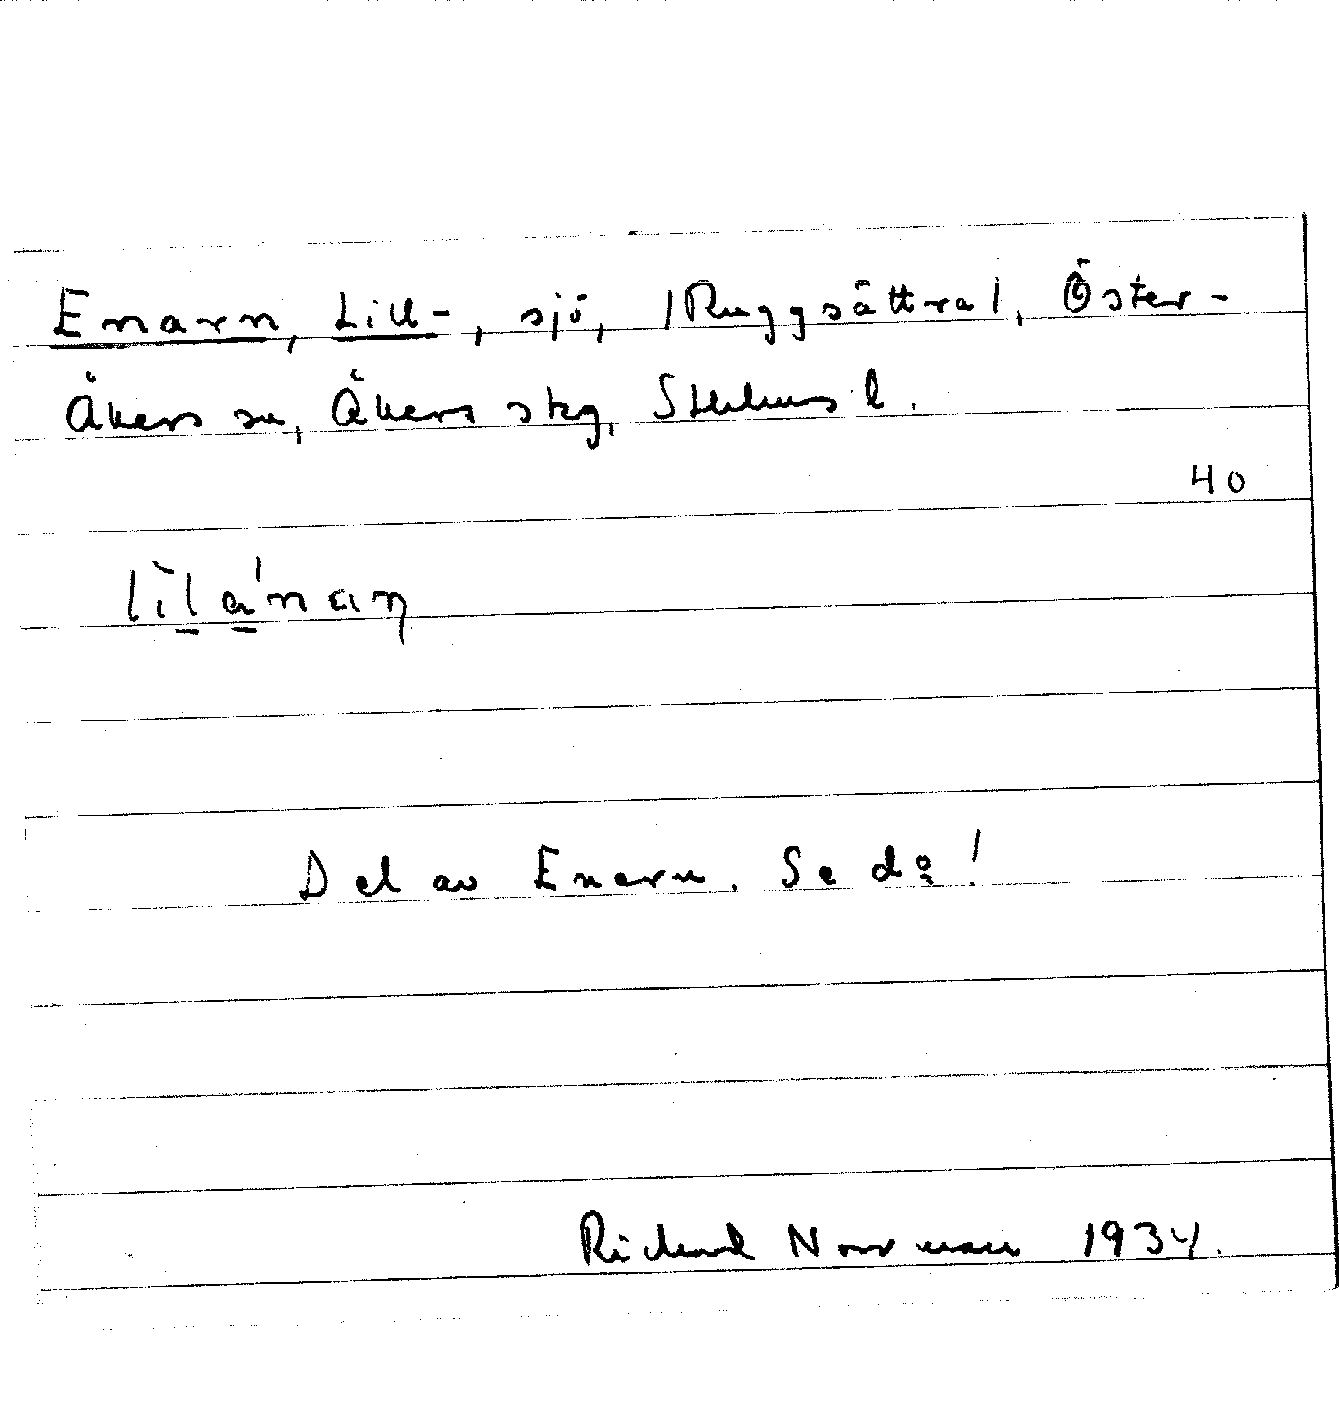 Enarn, Lill-, sjö, /Ruggsättra/, Öster-
Åkers sn, Åkers skg, Sthlms l.
40
lìlạ́nan
Del av Enarn. Se d:o!
Richard Norrman 1934.